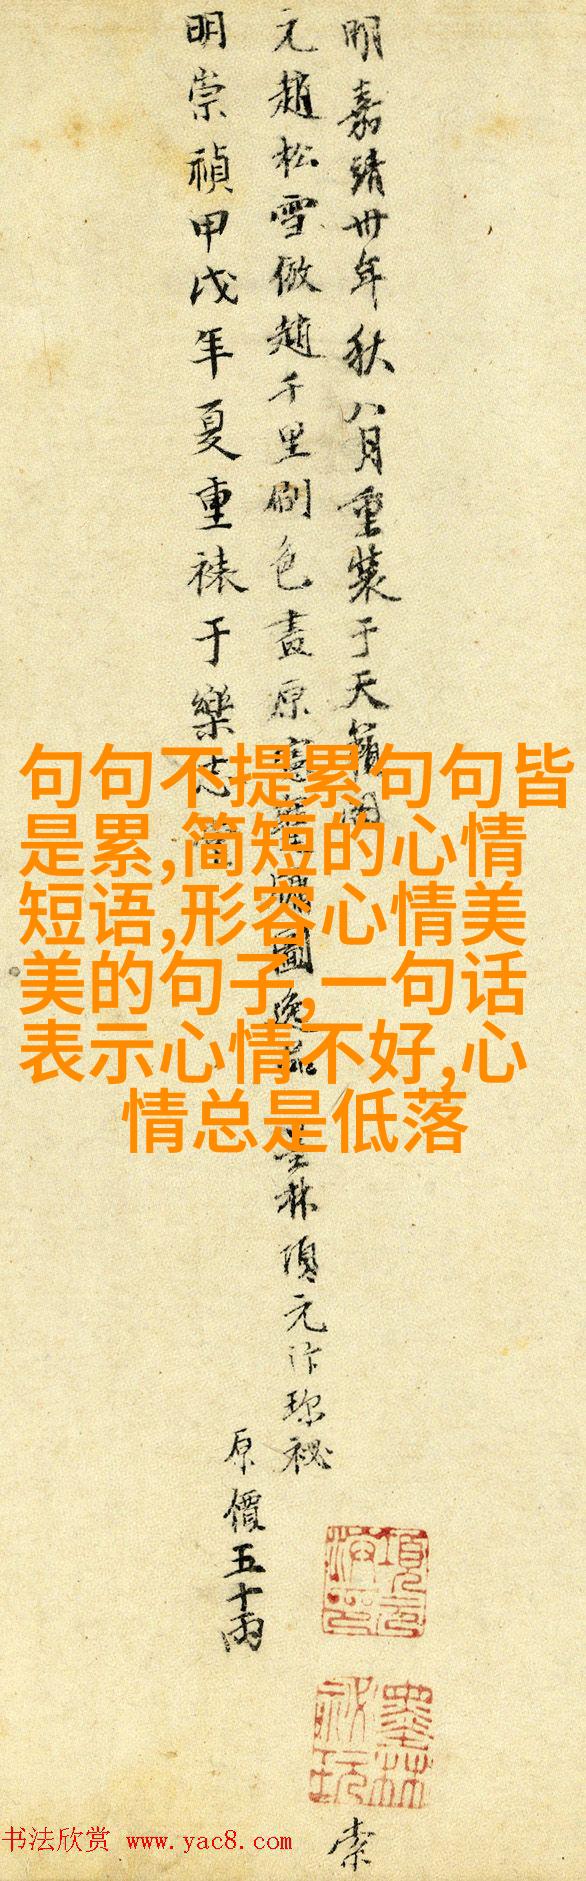 明嘉靖卅年秋八月重裝于天籟閣
元趙松雪倣趙千里刷色畫原圖逸品 墨林項元汴珍秘
明崇禎甲戌年夏重裱于樂志堂
原價五十兩
句句不提累句句皆
是累,简短的心情
短语,形容心情美
美的句子,一句话
表示心情不好,心
情总是低落
項元汴印
墨林祕玩
索
书法欣赏 www.yac8.com